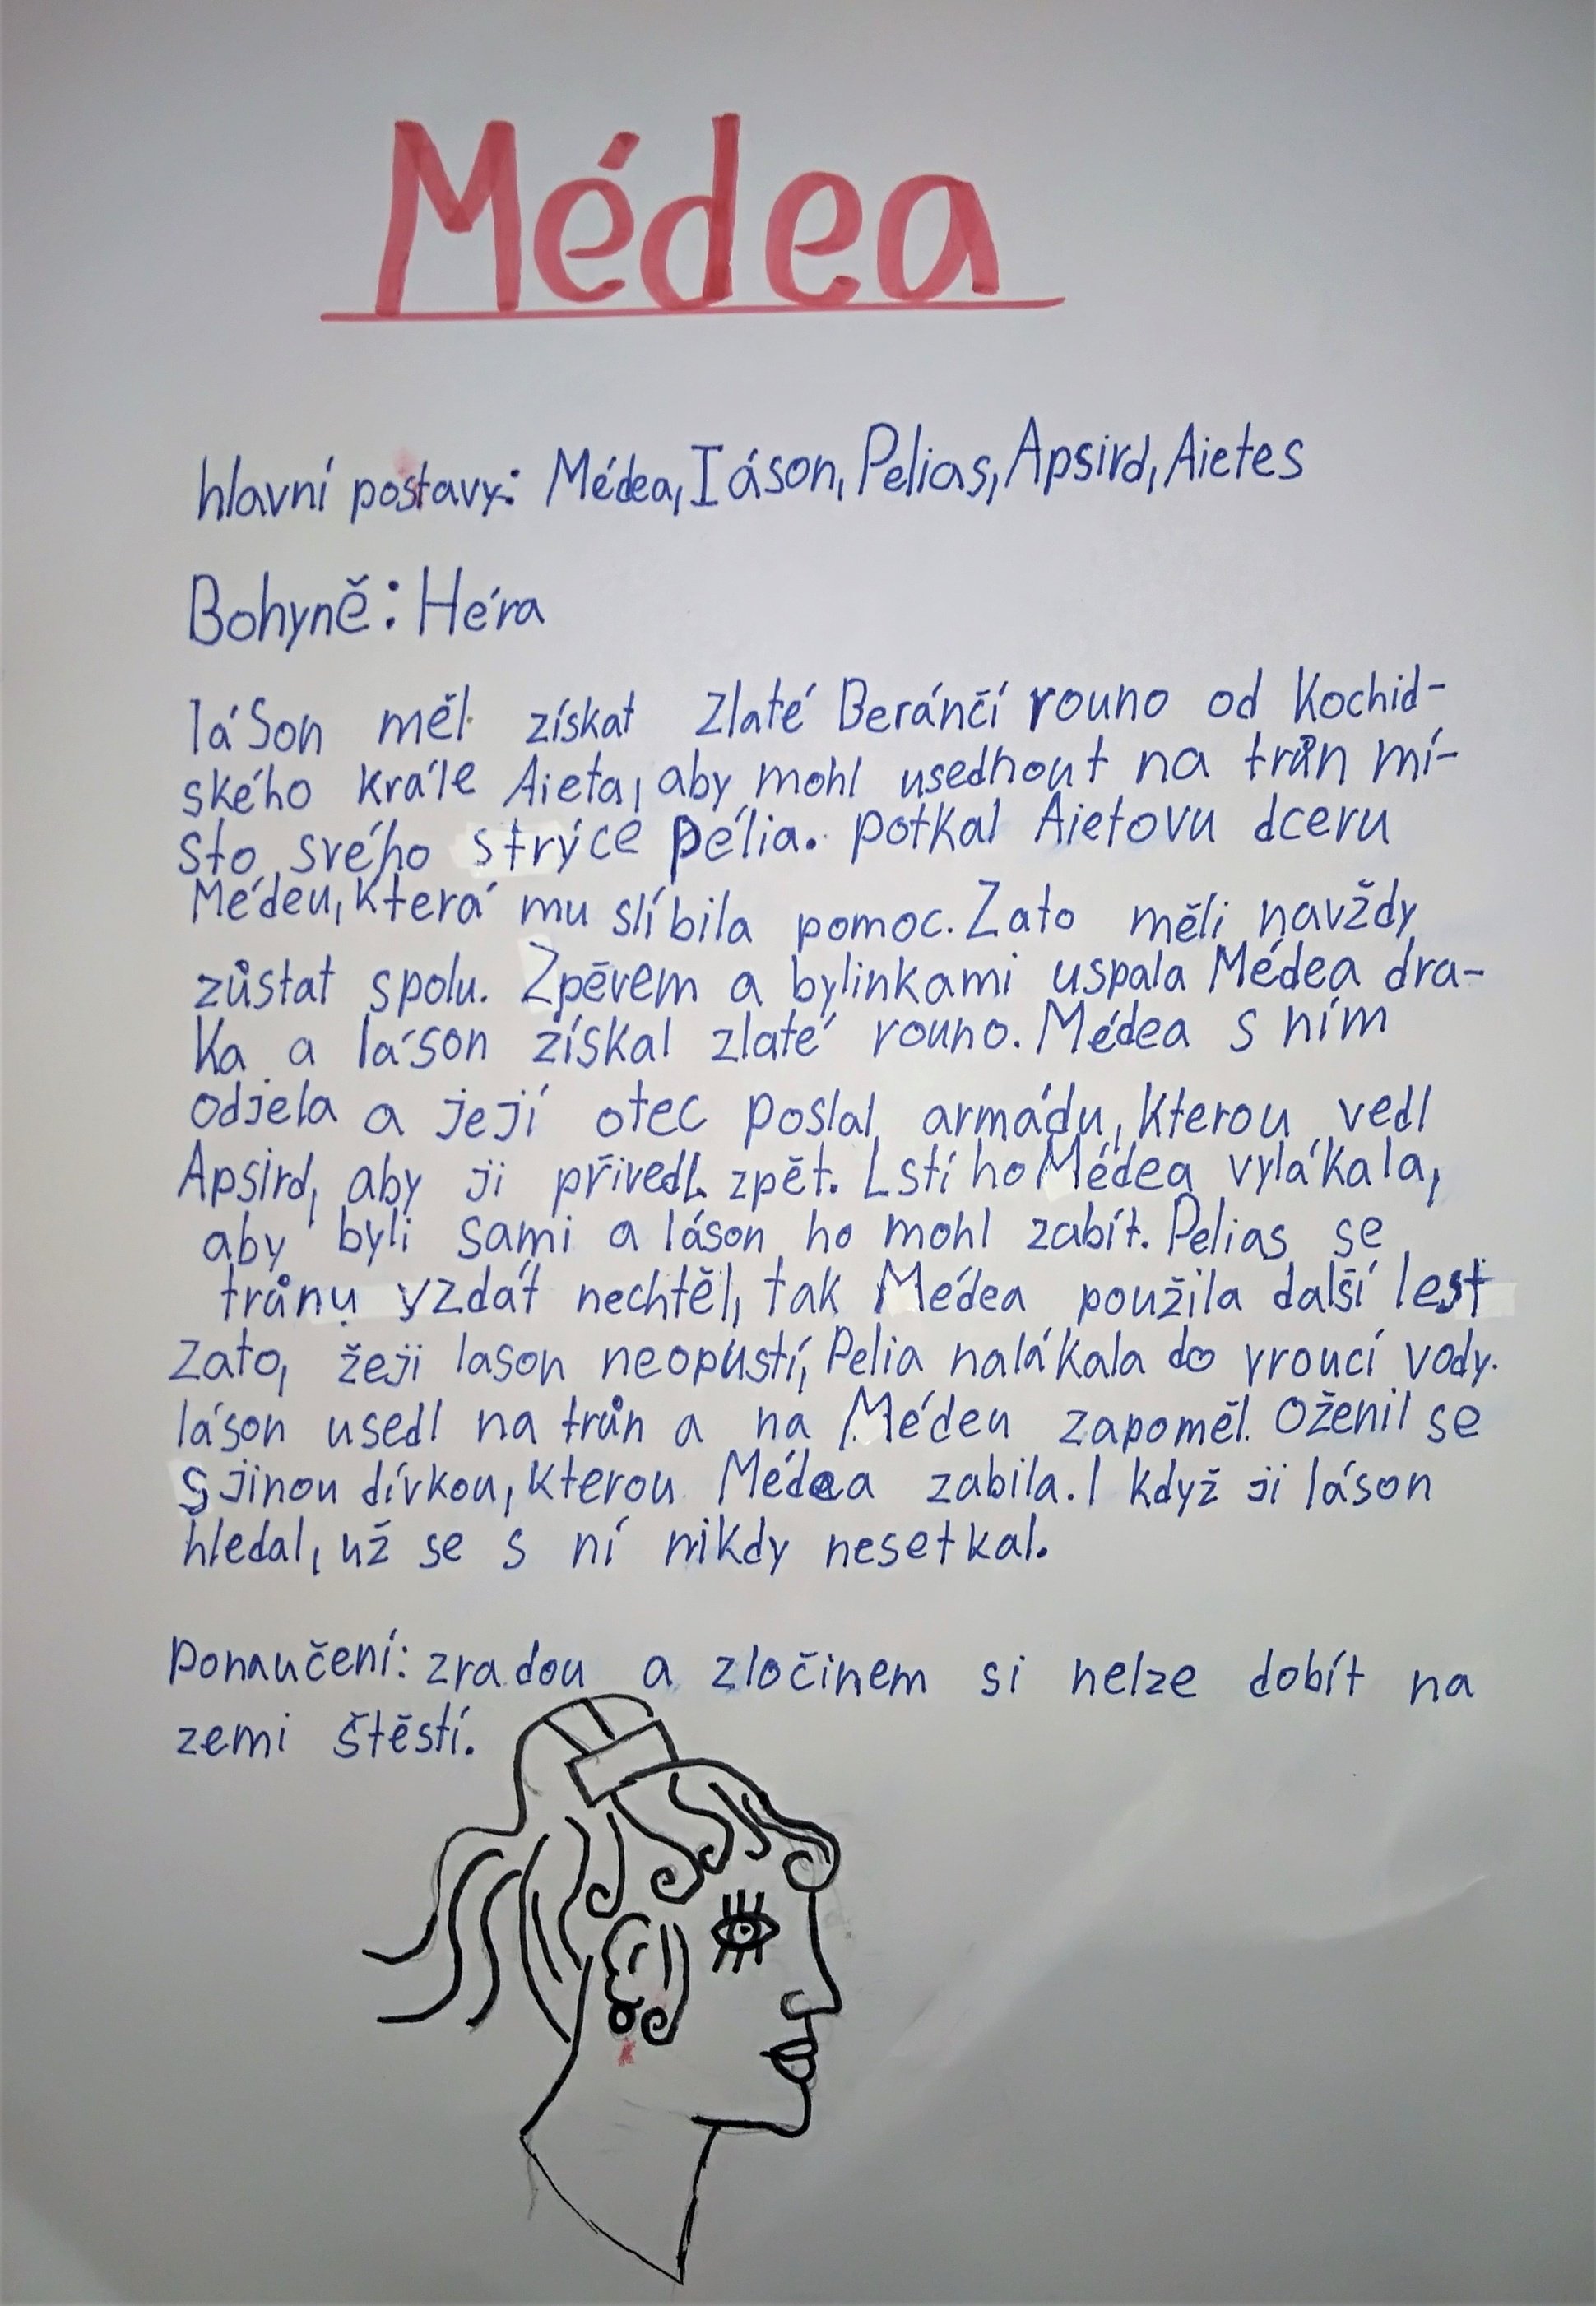 Médea
hlavní postavy: Médea, Iáson, Pelias, Apsird, Aietes
Bohyně: Héra
Iáson měl získat Zlaté Beránčí rouno od Kochid-
ského krále Aieta, aby mohl usednout na trůn mí-
sto svého strýce Pélia. potkal Aietovu dceru
Médeu, která mu slíbila pomoc. Zato měli navždy
zůstat spolu. Zpěvem a bylinkami uspala Médea dra-
ka a Iáson získal zlaté rouno. Médea s ním
odjela a její otec poslal armádu, kterou vedl
Apsird, aby ji přivedl zpět. Lstí ho Médea vylákala,
aby byli sami a Iáson ho mohl zabít. Pelias se
trůnu vzdát nechtěl, tak Médea použila další lest
Zato, žeji Iason neopustí, Pelia nalákala do vroucí vody.
Iáson usedl na trůn a na Médeu zapoměl. Oženil se
s jinou dívkou, kterou Médea zabila. I když ji Iáson
hledal, už se s ní nikdy nesetkal.
Ponaučení: zradou a zločinem si nelze dobít na
zemi štěstí.